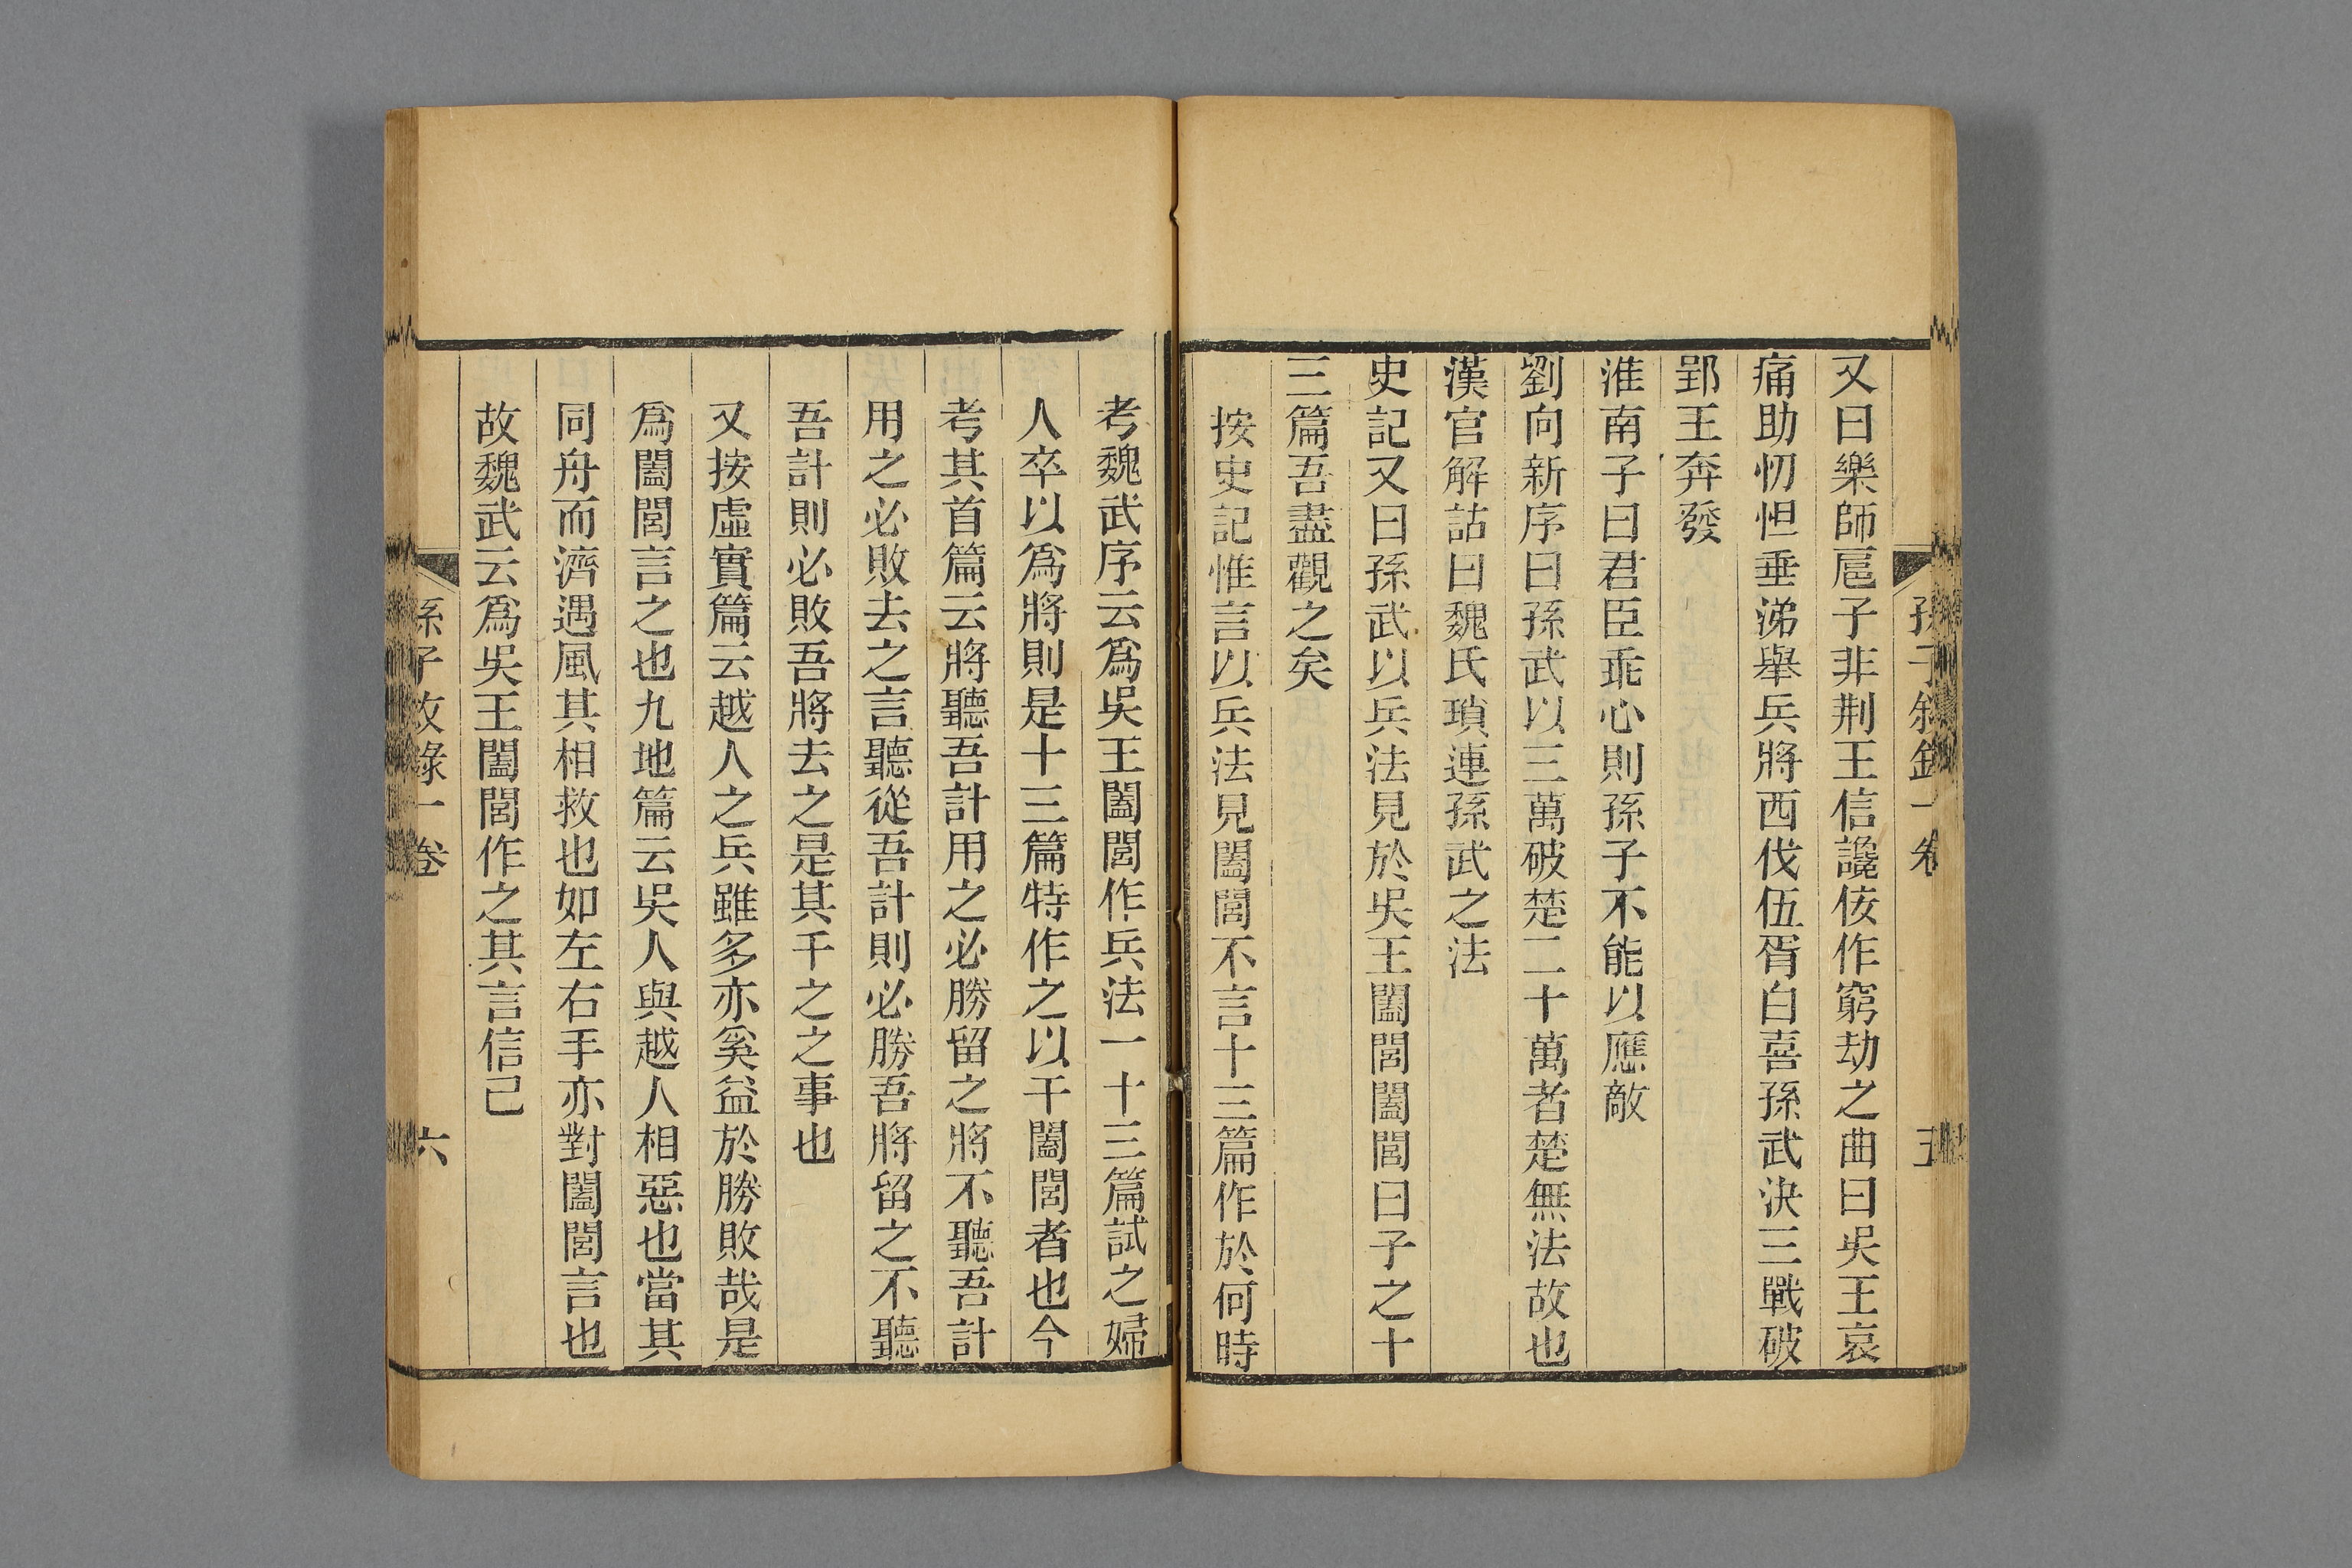 孫子敘錄一卷
五
又曰樂師扈子非荆王信讒佞作窮劫之曲曰吳王哀
痛助忉怛垂涕舉兵將西伐伍胥白喜孫武決三戰破
郢王奔發
淮南子曰君臣乖心則孫子不能以應敵
劉向新序曰孫武以三萬破楚二十萬者楚無法故也
漢官解詁曰魏氏瑣連孫武之法
史記又曰孫武以兵法見於吳王闔閭闔閭曰子之十
三篇吾盡觀之矣
按史記惟言以兵法見闔閭不言十三篇作於何時
考魏武序云爲吳王闔閭作兵法一十三篇試之婦
人卒以爲將則是十三篇特作之以干闔閭者也今
考其首篇云將聽吾計用之必勝留之將不聽吾計
用之必敗去之言聽從吾計則必勝吾將留之不聽
吾計則必敗吾將去之是其干之之事也
又按虛實篇云越人之兵雖多亦奚益於勝敗哉是
爲闔閭言之也九地篇云吳人與越人相惡也當其
同舟而濟遇風其相救也如左右手亦對闔閭言也
故魏武云爲吳王闔閭作之其言信已
孫子敘錄一卷
六